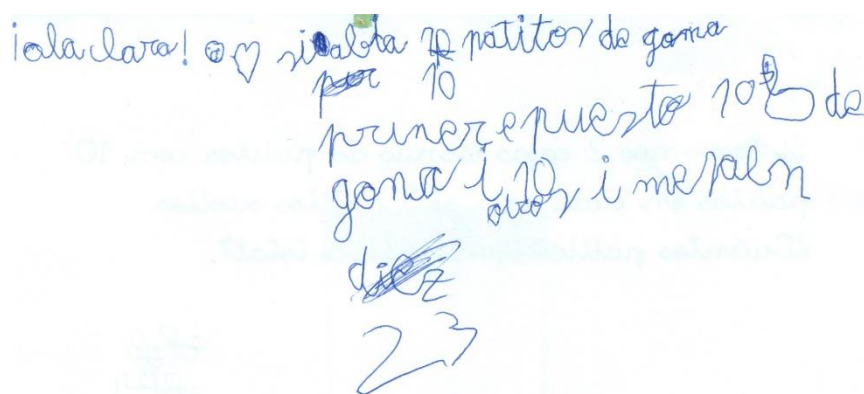 ¡ola clara! siabia 12 patitos de goma
por 10
primer e puesto 10 de
goma i 10 otros i me salen
diez
23